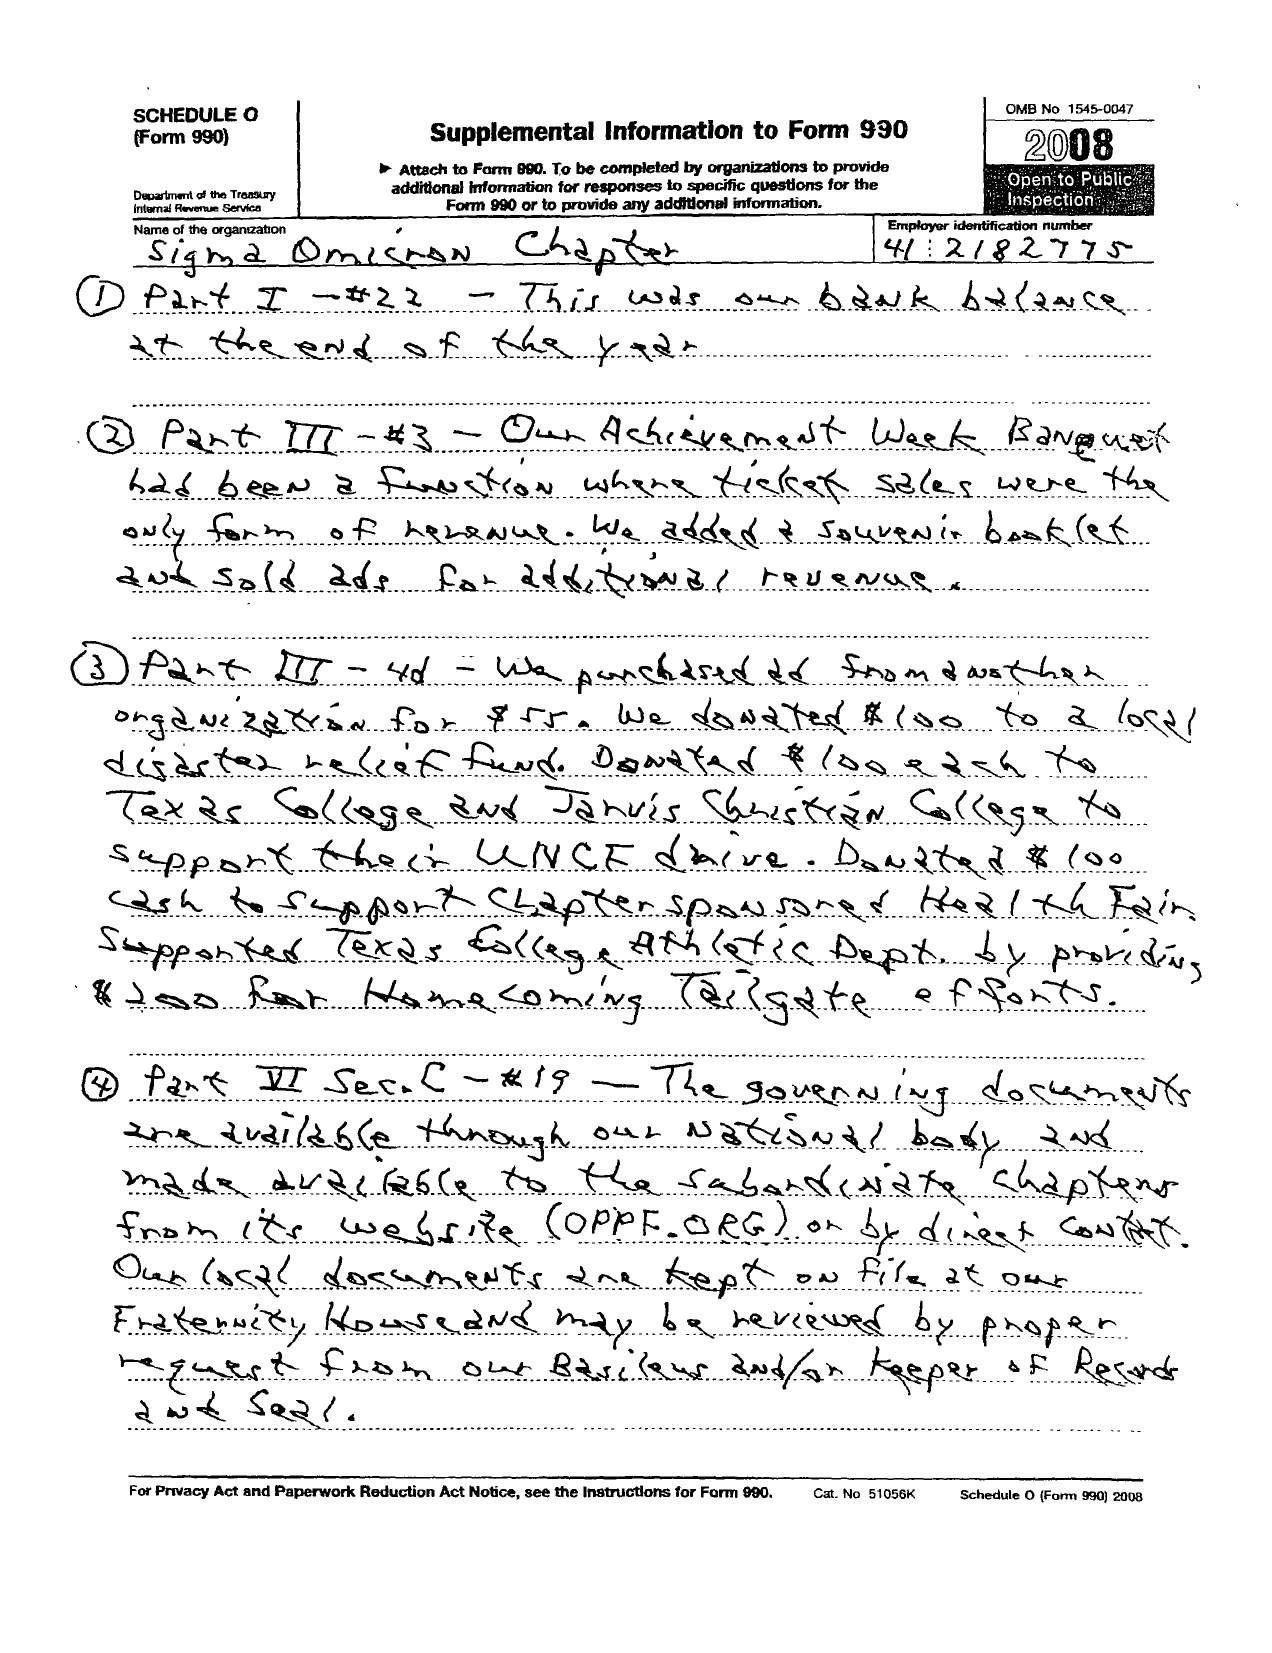 SCHEDULE O
(Form 990)
Department of the Treasury
Internal Revenue Service
Supplemental Information to Form 990
► Attach to Form 990. To be completed by organizations to provide
additional information for responses to specific questions for the
Form 990 or to provide any additional information.
OMB No 1545-0047
2008
Open to Public
Inspection
Name of the organization
Sigma Omicron Chapter
Employer identification number
41:2182775
① Part I -#22 - This was our bank balance
at the end of the year
② Part III -#3 - Our Achievement Week Banquet
had been a function where ticket sales were the
only form of revenue. We added a souvenir booklet
and sold ads for additional revenue.
③ Part III - 4d - We purchased ad from another
organization for $55. We donated $100 to a local
disaster relief fund. Donated $100 each to
Texas College and Jarvis Christian College to
support their UNCF drive. Donated $100
cash to support Chapter sponsored Health Fair.
Supported Texas College Athletic Dept. by providing
$200 for Homecoming Tailgate efforts.
④ Part VI Sec. C - #19 - The governing documents
are available through our National body and
made available to the subordinate chapters
from its website (OPPF.ORG) or by direct contact.
Our local documents are kept on file at our
Fraternity House and may be reviewed by proper
request from our Basileus and/or Keeper of Records
and Seal.
For Privacy Act and Paperwork Reduction Act Notice, see the Instructions for Form 990.
Cat. No 51056K
Schedule O (Form 990) 2008